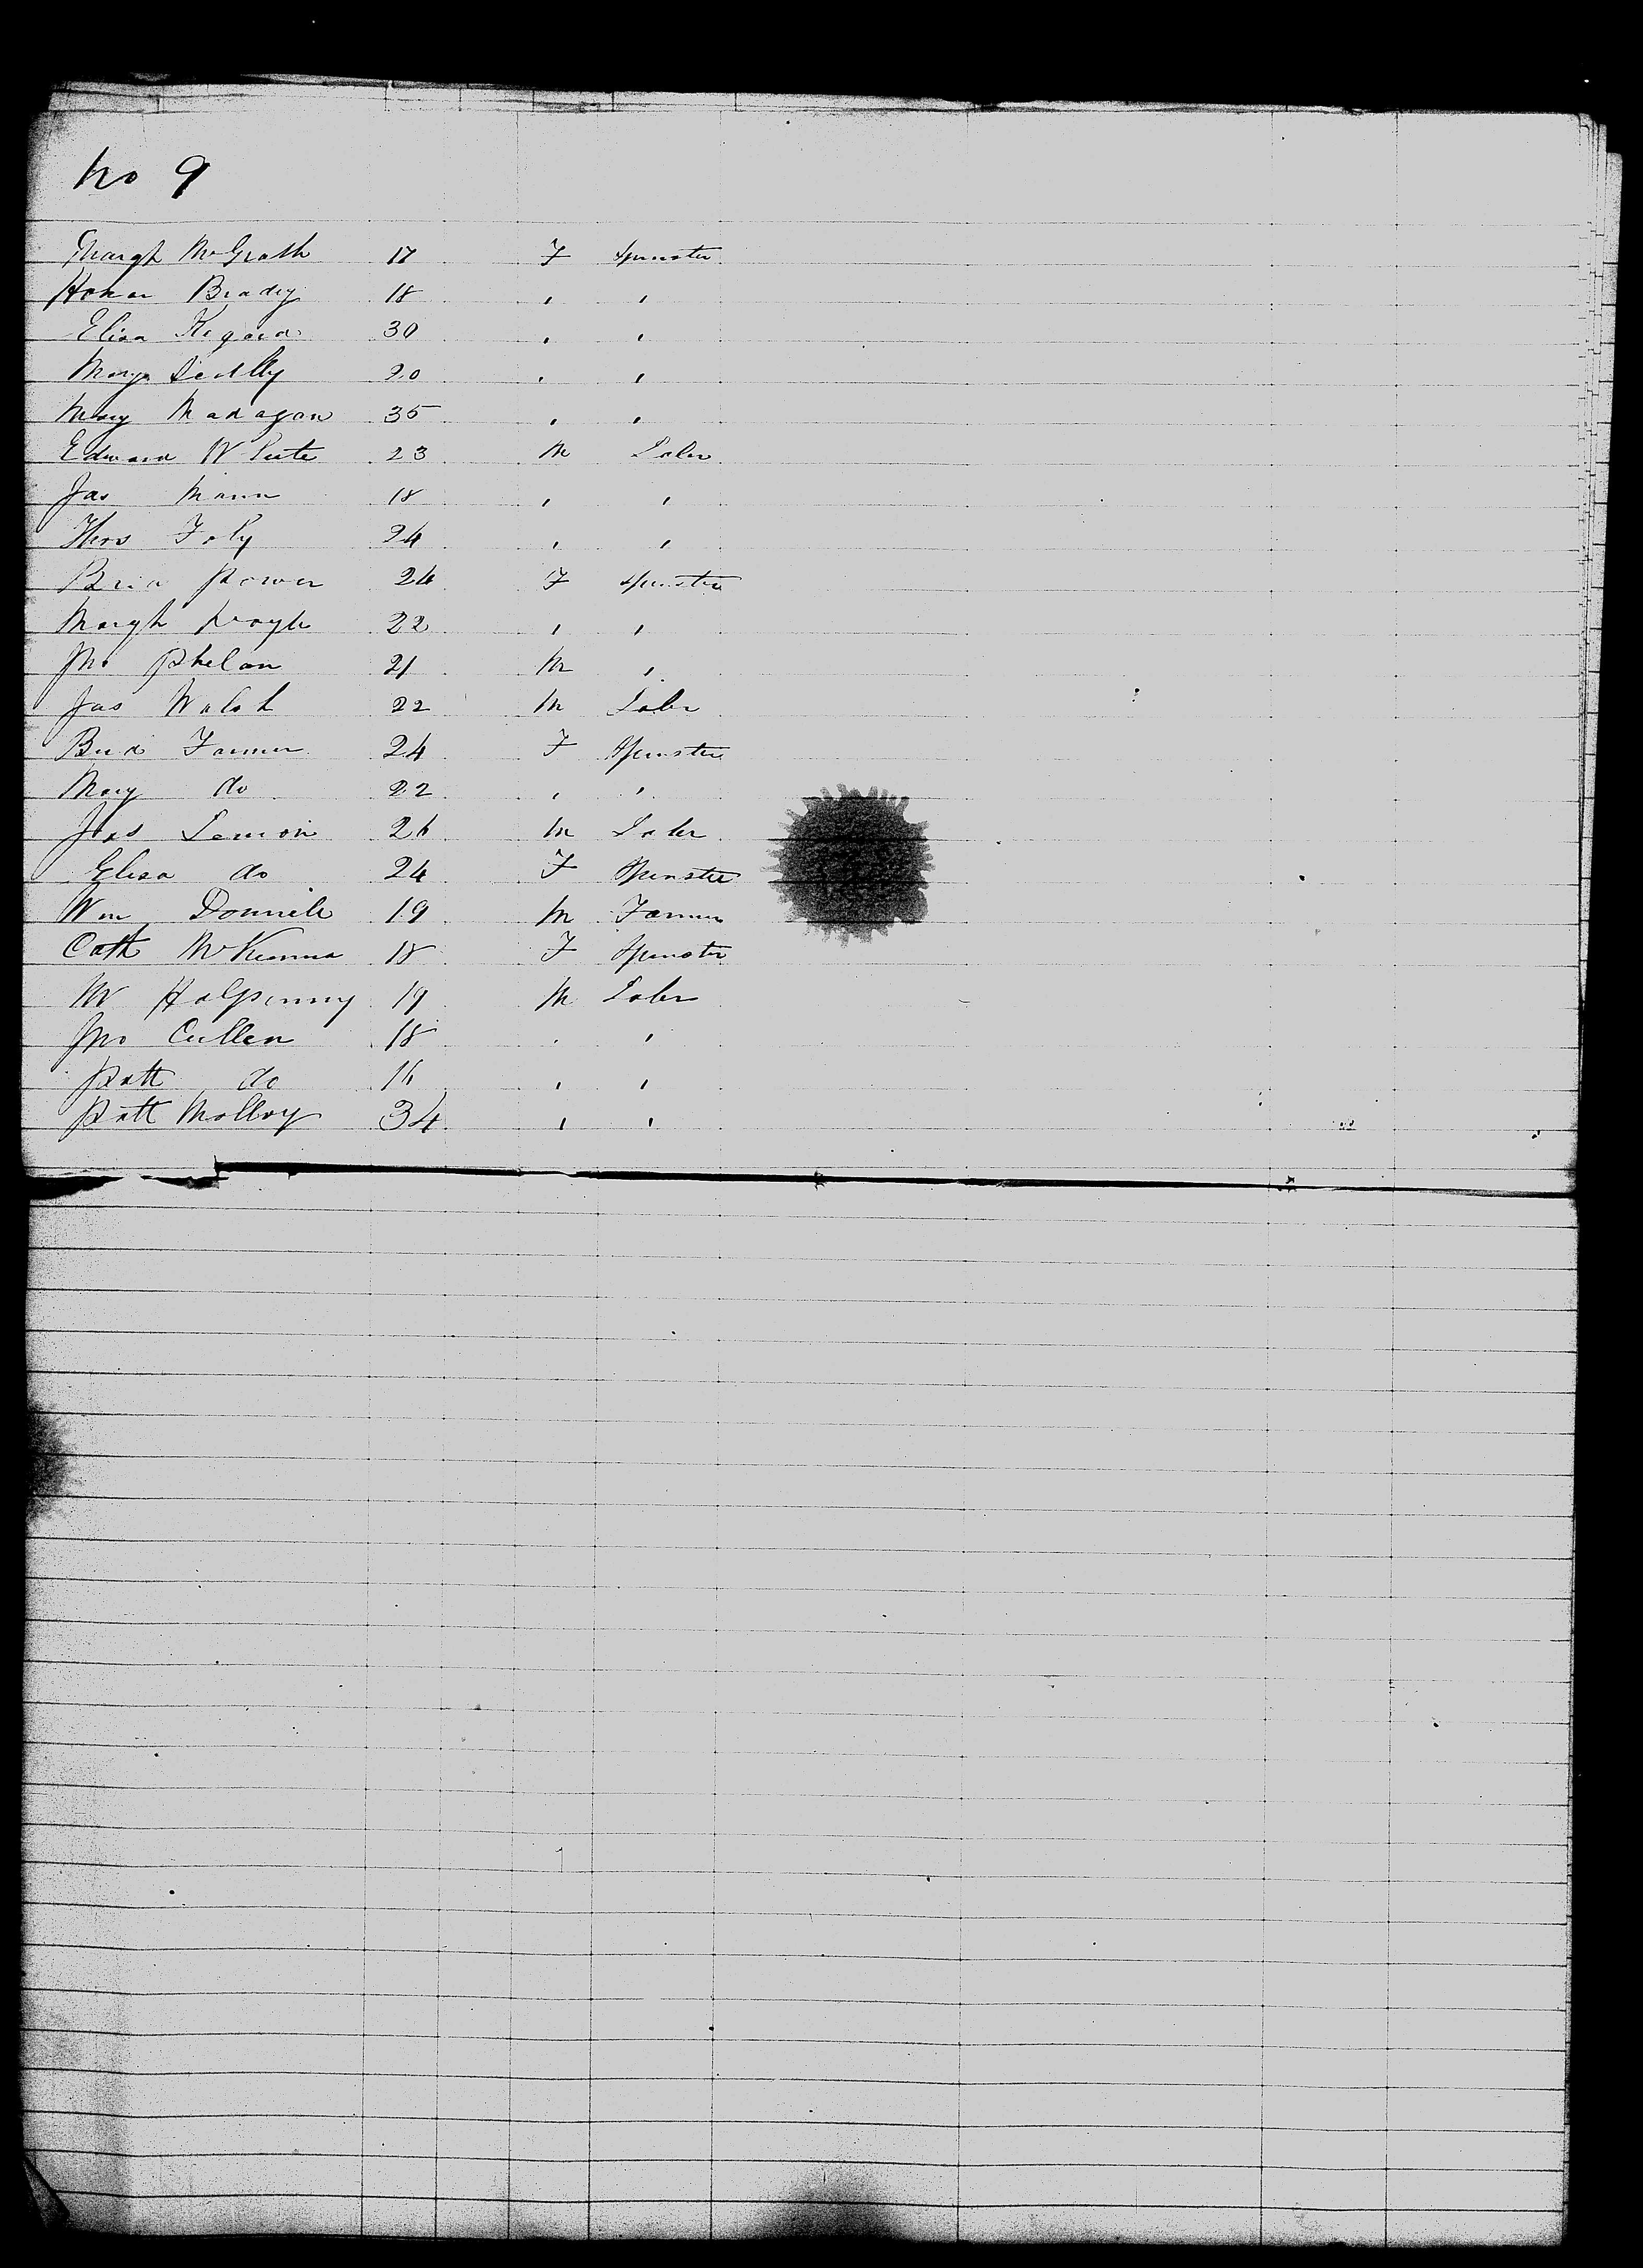 No 9
Margt McGrath 17 F Spinster
Honor Brady 18 " "
Eliza 30 " "
Mary 20 " "
Mary Madagan 35 " "
Edward White 23 M Labr
Jas Mann 18 " "
Thos Foly 24 " "
Brid Power 24 F Spinster
Margt 22 " "
Jno Phelan 21 M "
Jas Walsh 22 M Labr
Brid Farmer 24 F Spinster
Mary do 22 " "
Jas Lemon 26 M Labr
Eliza do 24 F Spinster
Wm 19 M Farmer
Cath McKenna 18 F Spinster
Halpenny 19 M Labr
Jno Cullen 18 " "
Patt do 16 " "
Patt Molloy 34 " "